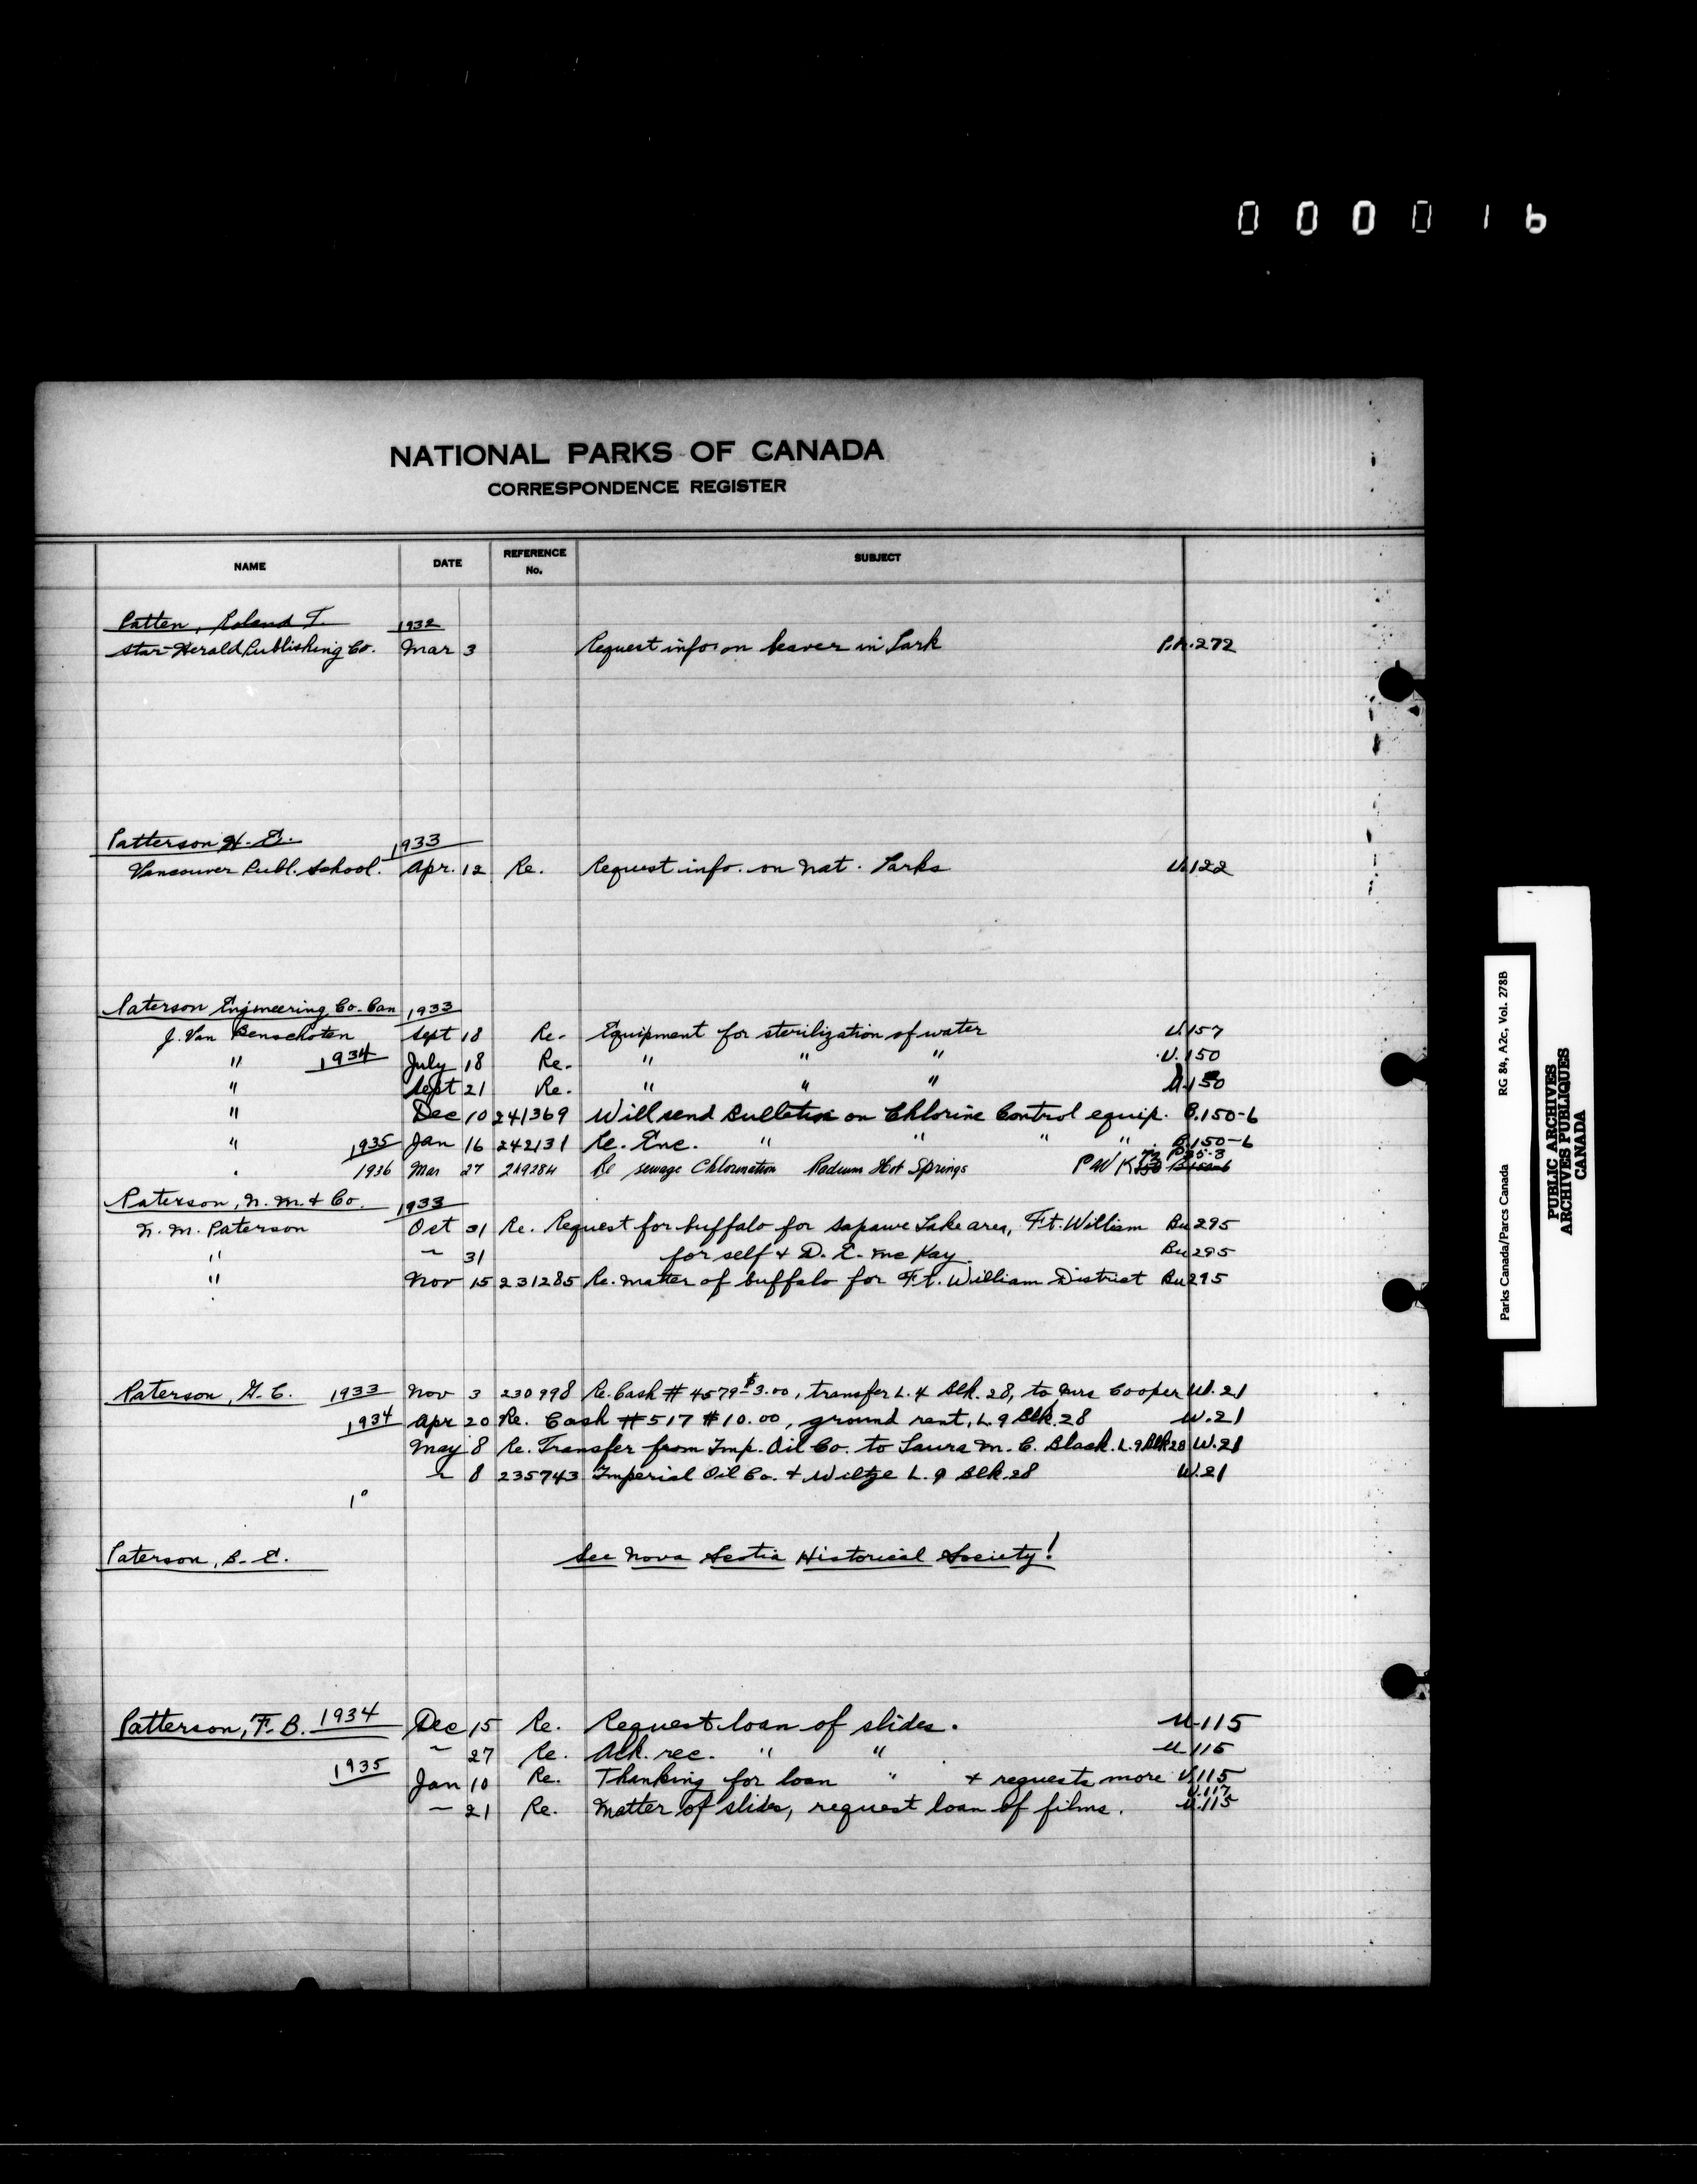 0 0 0 0 1 6
NATIONAL PARKS OF CANADA
CORRESPONDENCE REGISTER
NAME DATE REFERENCE No. SUBJECT
Patten, Roland T. 1932
Star-Herald Publishing Co. Mar 3 Request info. on beaver in Park P.A.272
Patterson H. E. 1933
Vancouver Publ. School. Apr. 12 Re. Request info. on Nat. Parks U.122
Paterson Engineering Co. Can 1933
J. Van Benschoten Sept 18 Re. Equipment for sterilization of water U.157
" 1934 July 18 Re. " " " U.150
" Sept 21 Re. " " " U.150
" Dec 10 241369 Will send Bulletin on Chlorine Control equip. B.150-6
" 1935 Jan 16 242131 Re. Enc. " " " " B.150-6
" 1936 Mar 27 249284 Re sewage Chlorination Radium Hot Springs PWK
Paterson, N. M. & Co. 1933
N. M. Paterson Oct 31 Re. Request for buffalo for Sapawe Lake area, Ft. William Bu295
" ~ 31 for self & D. E. McKay Bu295
" Nov 15 231285 Re. matter of buffalo for Ft. William District Bu295
Paterson, G. C. 1933 Nov 3 230998 Re. Cash # 4579 - $3.00, transfer L. 4 Blk. 28, to Mrs Cooper W.21
1934 Apr 20 Re. Cash #517 $10.00, ground rent, L. 9 Blk. 28 W.21
May 8 Re. Transfer from Imp. Oil Co. to Laura M. C. Black. L. 9 Blk 28 W.21
~ 8 235743 Imperial Oil Co. & Wiltze L. 9 Blk 28 W.21
1°
Paterson, B. E. See Nova Scotia Historical Society!
Patterson, F. B. 1934 Dec 15 Re. Request loan of slides. U.115
~ 27 Re. Ack. rec. " " U.115
1935 Jan 10 Re. Thanking for loan " & requests more U.115
~ 21 Re. Matter of slides, request loan of films. U.117 U.115
Parks Canada/Parcs Canada RG 84, A2c, Vol. 278B
PUBLIC ARCHIVES
ARCHIVES PUBLIQUES
CANADA